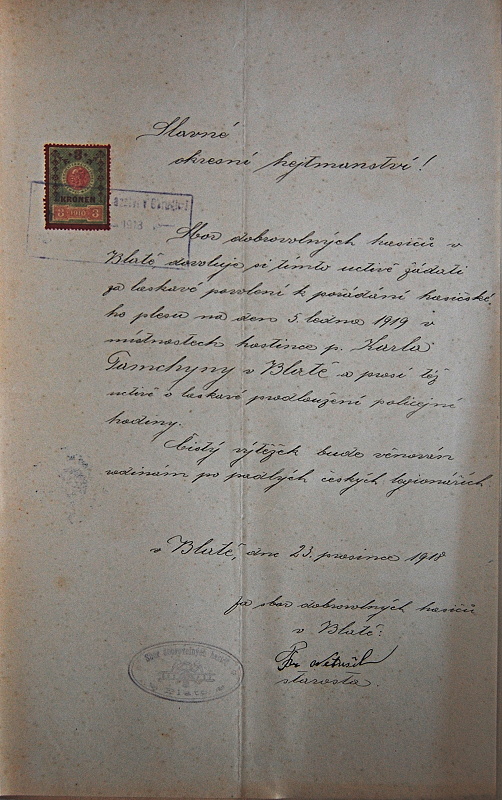 Slavné
okresní hejtmanství!
3
KRONEN
3 1910 3
1918
Sbor dobrovolných hasičů v
Blatě dovoluje si tímto uctivě žádati
za laskavé povolení k pořádání hasičské-
ho plesu na den 5. ledna 1919 v
místnostech hostince p. Karla
Tamchyny v Blatě a prosí též
uctivě o laskavé prodloužení policejní
hodiny.
Čistý výtěžek bude věnován
rodinám po padlých českých legionářích
v Blatě, dne 23. prosince 1918
Za sbor dobrovolných hasičů
v Blatě:
starosta.
Sbor dobrovolných hasičů